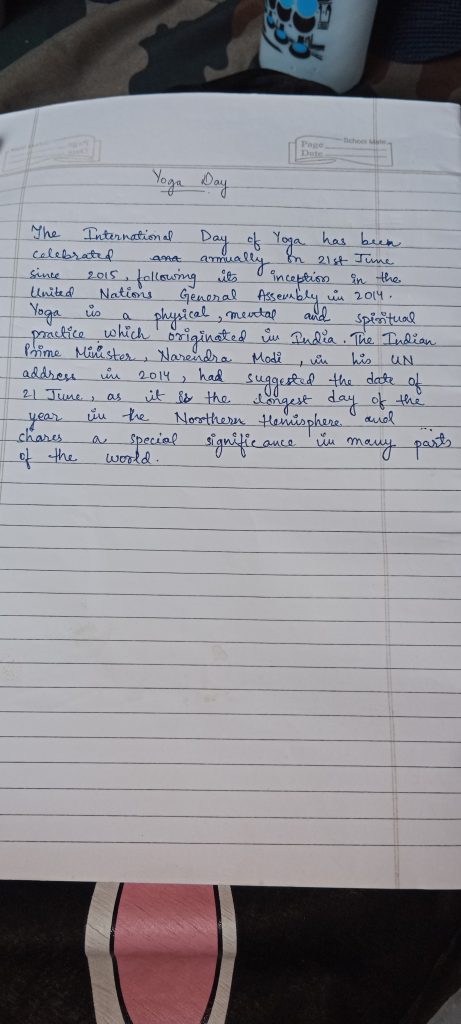 School Mate
Page
Date
Yoga Day
The International Day of Yoga has been
celebrated annually on 21st June
since 2015, following its inception in the
United Nations General Assembly in 2014.
Yoga is a physical, mental and spiritual
practice which originated in India. The Indian
Prime Minister, Narendra Modi, in his UN
address in 2014, had suggested the date of
21 June, as it is the longest day of the
year in the Northern Hemisphere and
chares a special significance in many parts
of the world.